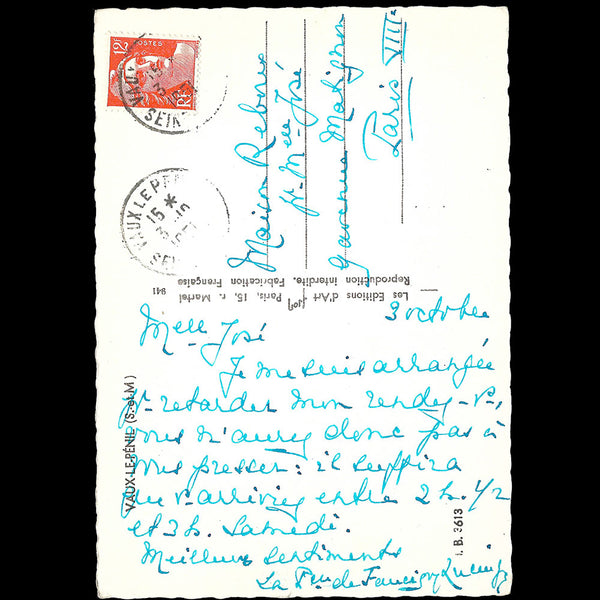 12F
POSTES
RF
VAUX-LE-PÉNIL
15 *
3 -10
SEINE
Maison Rebour
pr. Melle José
9 avenue Matignon
Paris VIII
Les Editions d'Art
Paris, 15, r. Martel
Reproduction interdite. Fabrication Française
941
3 octobre
Melle José
Je me suis arrangée
pr. retarder mon rendez-vs,
vous n'aurez donc pas à
vous presser : il suffira
que vs arriviez entre 2h. 1/2
et 3h. Samedi.
Meilleurs sentiments
La Psse de Faucigny Lucinge
VAUX-LE-PÉNIL (S.-et-M)
I. B. 3613